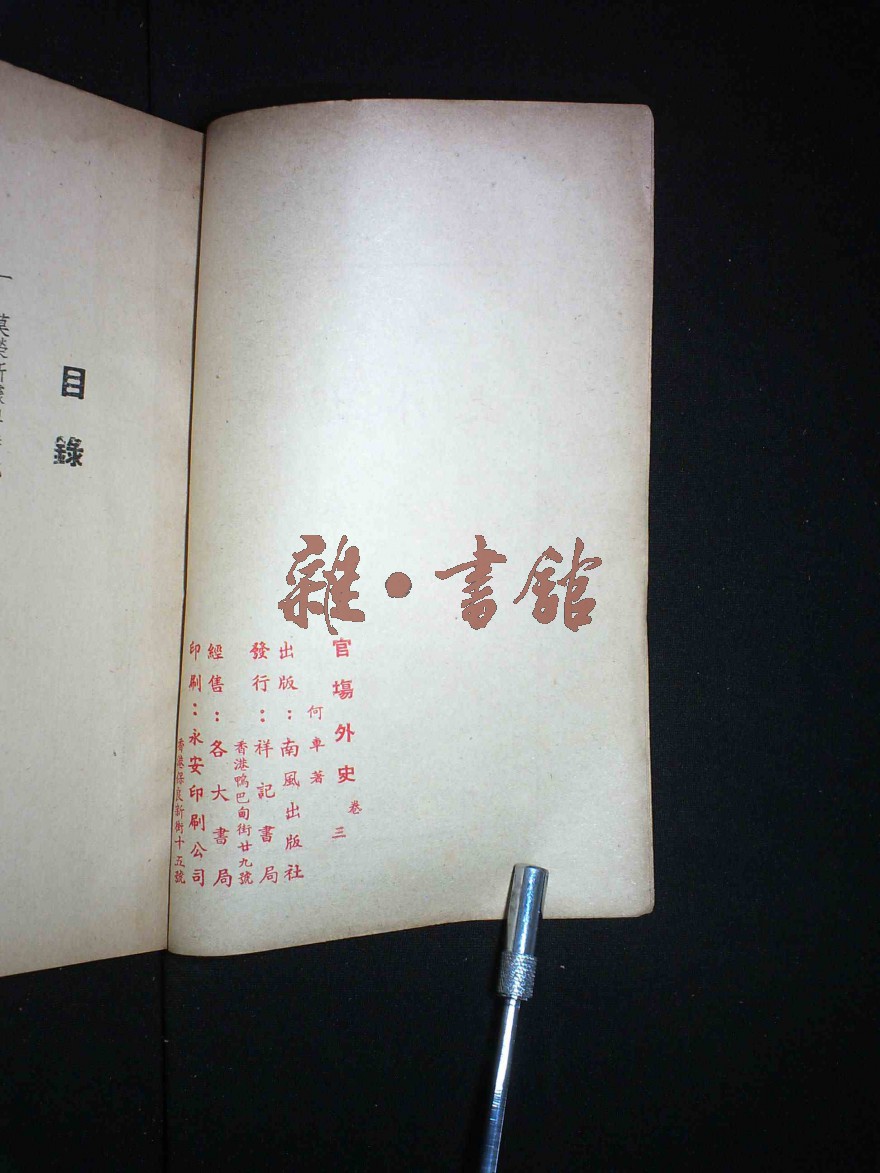 雜·書館
官塲外史 卷三
何車著
出版：南風出版社
發行：祥記書局
香港鴨巴甸街廿九號
經售：各大書局
印刷：永安印刷公司
香港保良新街十五號
目錄
一